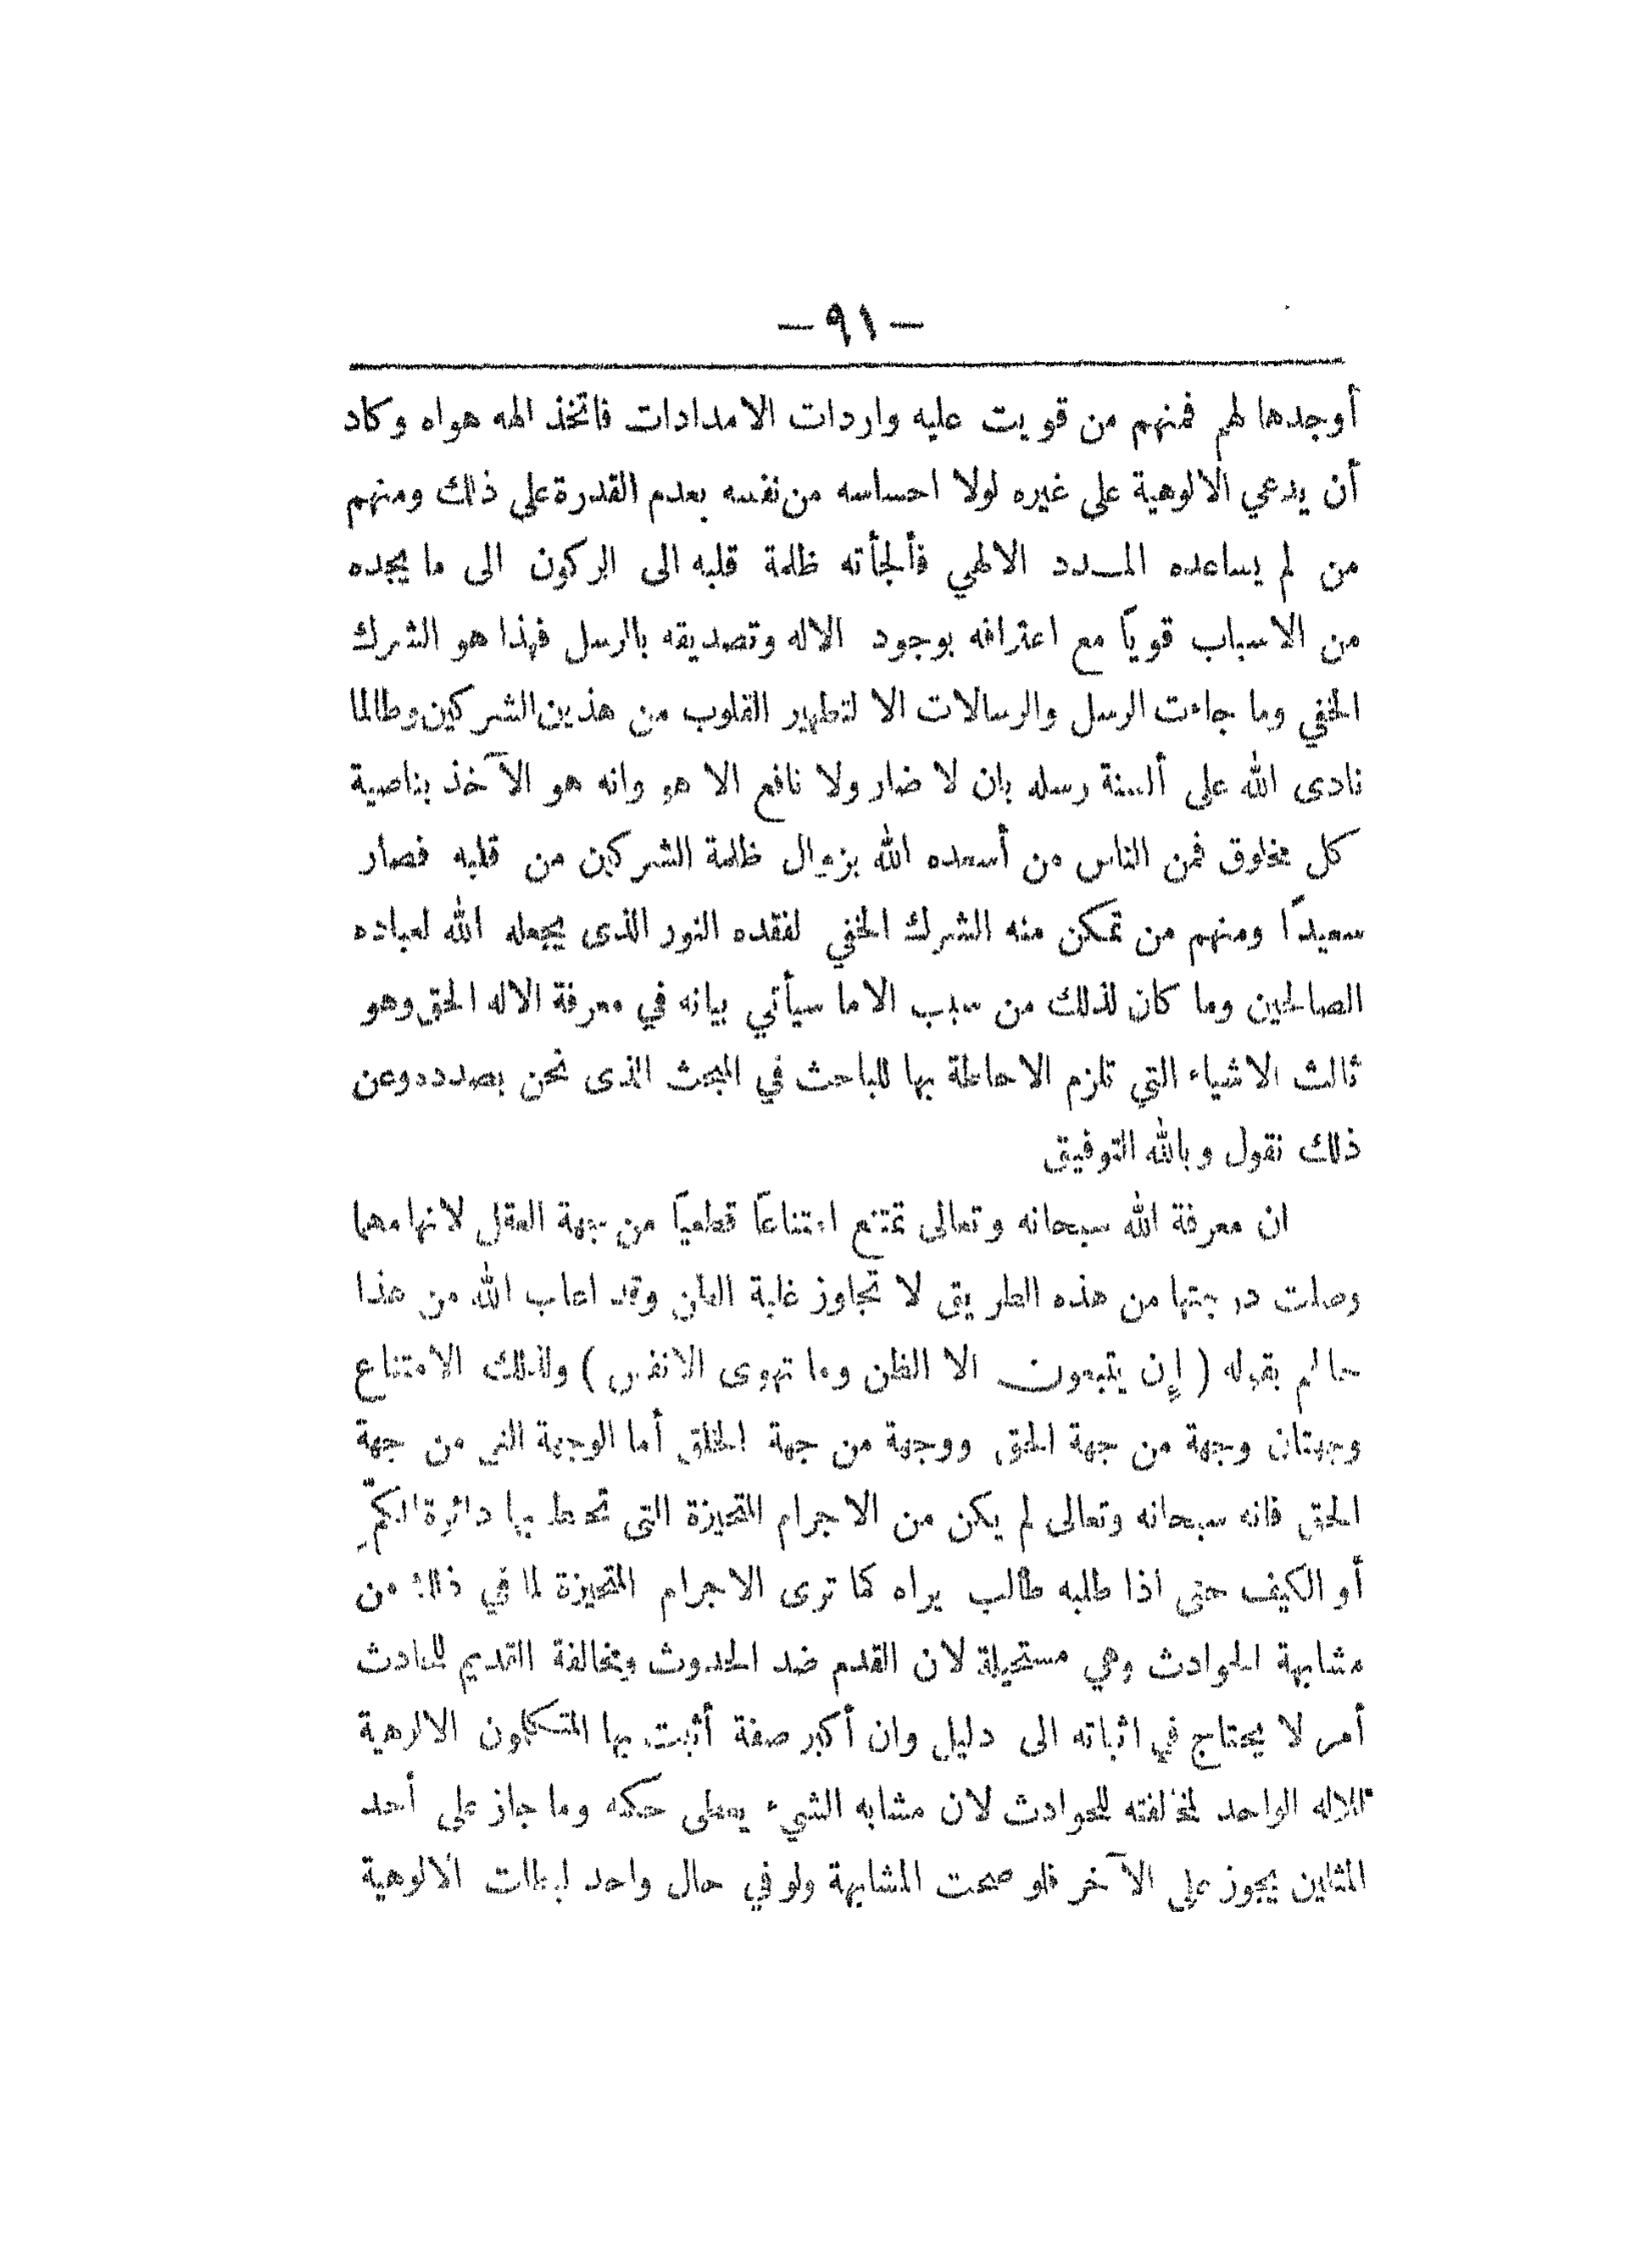 — ٩١ —
أوجدها لهم فمنهم من قويت عليه واردات الامدادات فاتخذ الهه هواه وكاد
أن يدعي الالوهية على غيره لولا احساسه من نفسه بعدم القدرة على ذلك ومنهم
من لم يساعده المدد الالهي فألجأته ظلمة قلبه الى الركون الى ما يجده
من الاسباب قوياً مع اعترافه بوجود الاله وتصديقه بالرسل فهذا هو الشرك
الخفي وما جاءت الرسل والرسالات الا لتطهير القلوب من هذين الشركين وطالما
نادى الله على ألسنة رسله بان لا ضار ولا نافع الا هو وانه هو الآخذ بناصية
كل مخلوق فمن الناس من أسعده الله بزوال ظلمة الشركين من قلبه فصار
سعيداً ومنهم من تمكن منه الشرك الخفي لفقده النور الذى يجعله الله لعباده
الصالحين وما كان لذلك من سبب الا ما سيأتي بيانه في معرفة الاله الحق وهو
ثالث الاشياء التي تلزم الاحاطة بها للباحث في المبحث الذى نحن بصدده وعن
ذلك نقول وبالله التوفيق
ان معرفة الله سبحانه وتعالى تمتنع امتناعاً قطعياً من جهة العقل لانها مهما
وصلت درجتها من هذه الطريق لا تجاوز غلبة الظن وقد اعاب الله من هذا
حالهم بقوله ( إن يتبعون الا الظن وما تهوى الانفس ) ولذلك الامتناع
وجهتان وجهة من جهة الحق ووجهة من جهة الخلق أما الوجهة التي من جهة
الحق فانه سبحانه وتعالى لم يكن من الاجرام المتحيزة التى تحيط بها دائرة الكمّ
أو الكيف حتى اذا طلبه طالب يراه كما ترى الاجرام المتحيزة لما في ذلك من
مشابهة الحوادث وهي مستحيلة لان القدم ضد الحدوث ومخالفة القديم للحادث
أمر لا يحتاج في اثباته الى دليل وان أكبر صفة أثبت بها المتكلمون الالوهية
للاله الواحد لمخالفته للحوادث لان مشابه الشيء يعطى حكمه وما جاز على أحد
المثلين يجوز على الآخر فلو صحت المشابهة ولو في حال واحد لبطلت الالوهية